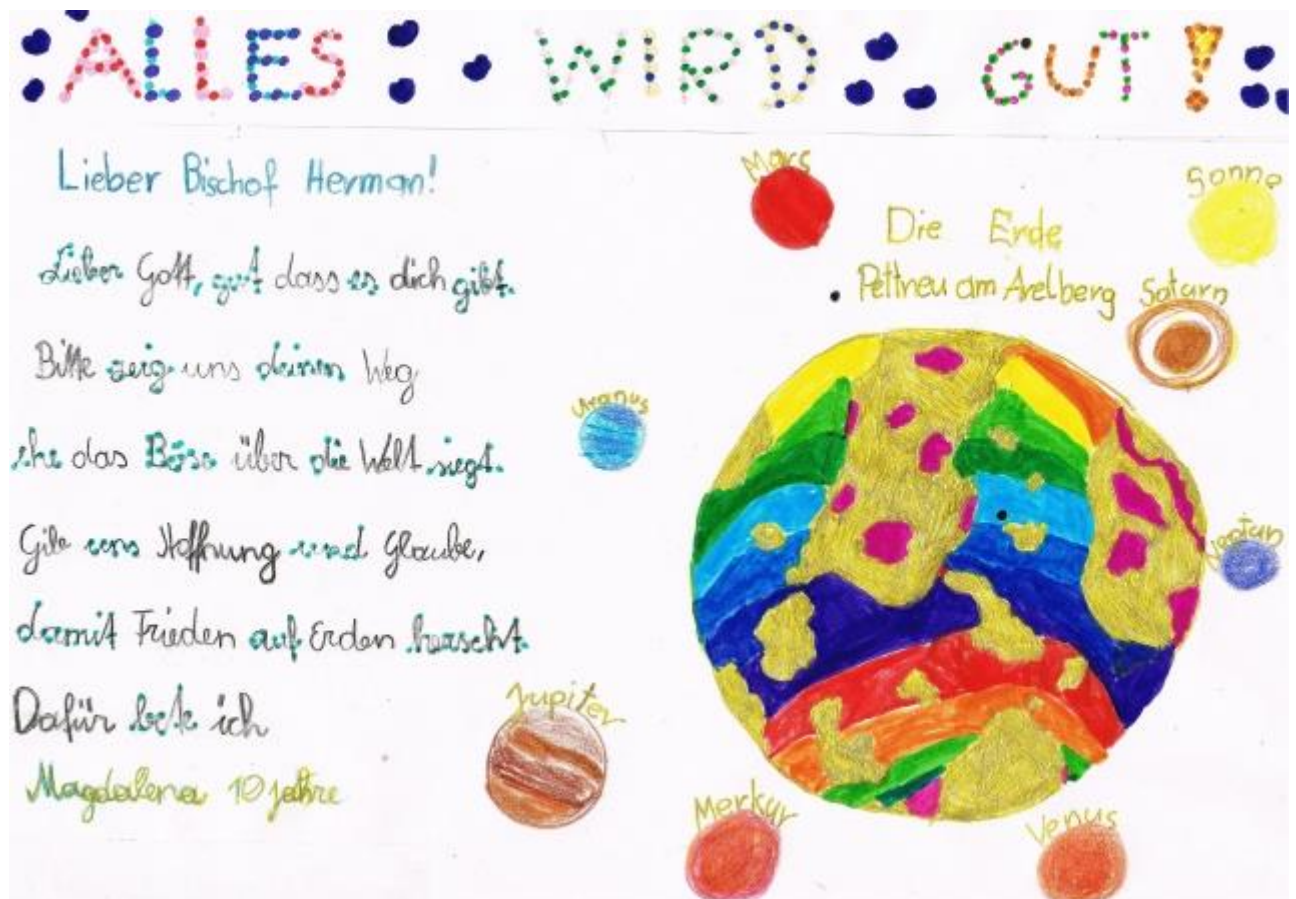 ALLES WIRD GUT!
Lieber Bischof Herman!
Lieber Gott, gut dass es dich gibt.
Bitte zeig uns deinen Weg
ehe das Böse über die Welt siegt.
Gib uns Hoffnung und Glaube,
damit Frieden auf Erden herscht.
Dafür bete ich
Magdalena 10 Jahre
Mars
Sonne
Die Erde
Pettneu am Arelberg
Saturn
Uranus
Neptun
Jupiter
Merkur
Venus